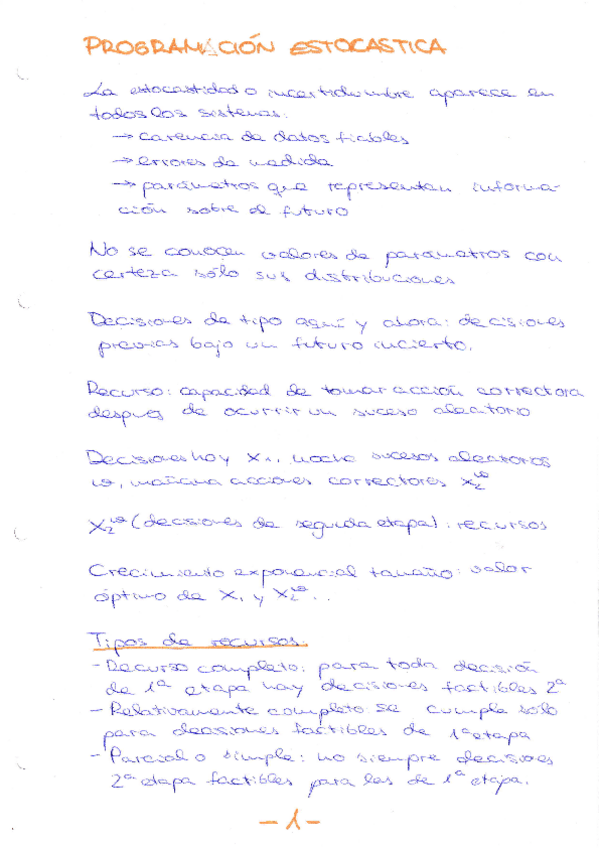 PROGRAMACIÓN ESTOCASTICA
La estocastidad o incertidumbre aparece en
todos los sistemas:
→ carencia de datos fiables
→ errores de medida
→ parámetros que representan informa-
ción sobre el futuro
No se conocen valores de parámetros con
certeza sólo sus distribuciones
Decisiones de tipo aquí y ahora: decisiones
previas bajo un futuro incierto.
Recurso: capacidad de tomar acción correctora
después de ocurrir un suceso aleatorio
Decisiones hoy X₁, noche sucesos aleatorios
ω, mañana acciones correctores X₂^ω
X₂^ω (decisiones de segunda etapa): recursos
Crecimiento exponencial tamaño: valor
óptimo de X₁ y X₂^ω...
Tipos de recursos:
- Recurso completo: para toda decisión
de 1ª etapa hay decisiones factibles 2ª
- Relativamente completo: se cumple sólo
para decisiones factibles de 1ª etapa
- Parcial o simple: no siempre decisiones
2ª etapa factibles para las de 1ª etapa.
- 1 -